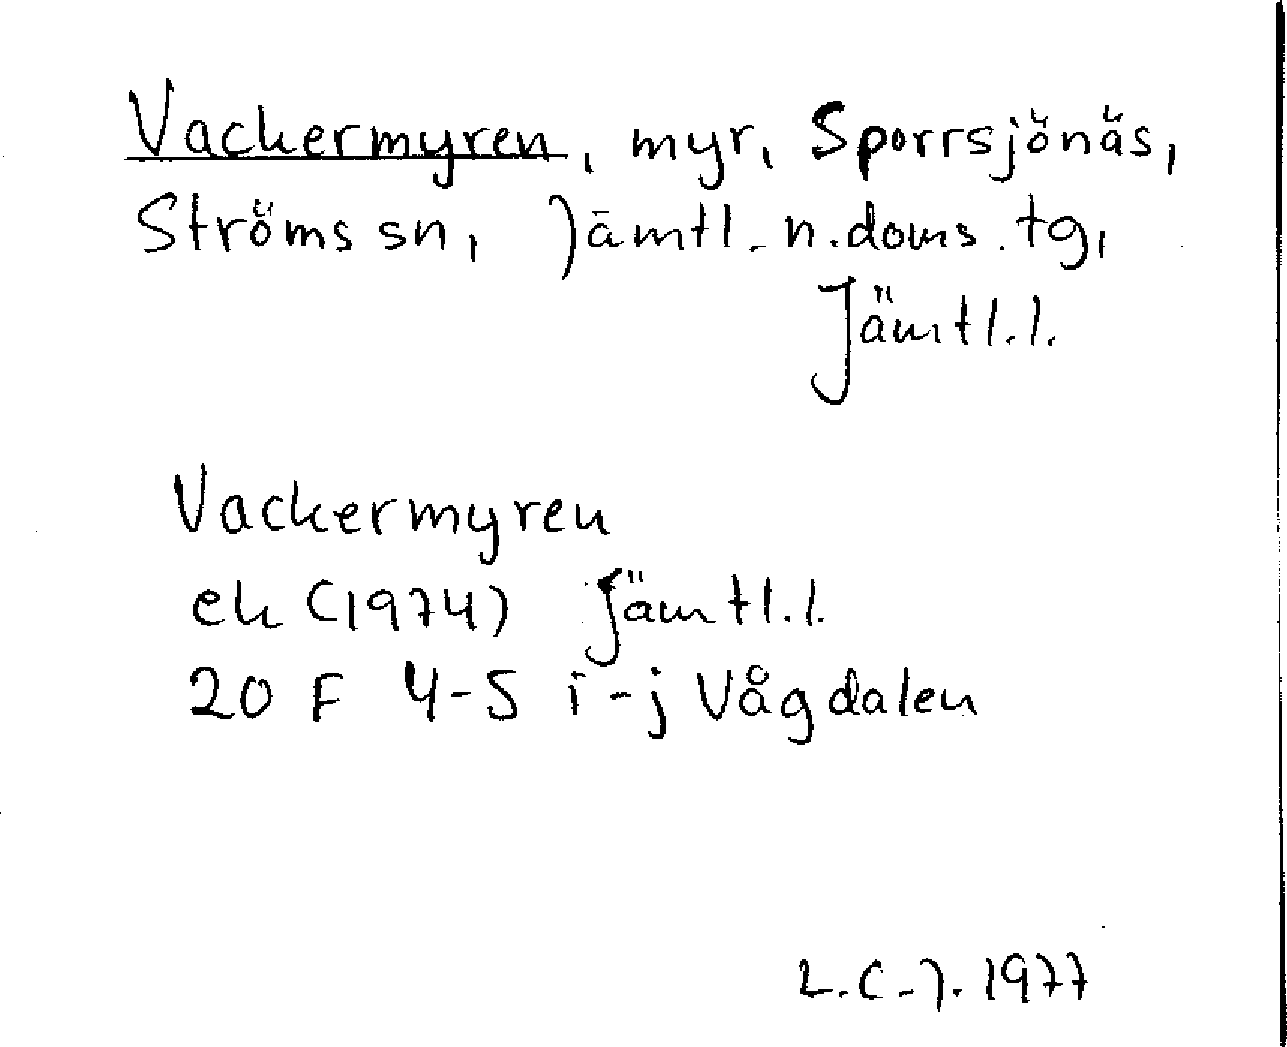 Vackermyren, myr, Sporrsjönäs,
Ströms sn, Jämtl. n. doms. tg,
Jämtl. l.
Vackermyren
ek (1974) Jämtl. l.
20 F 4-5 i-j Vågdalen
L.C-J. 1977